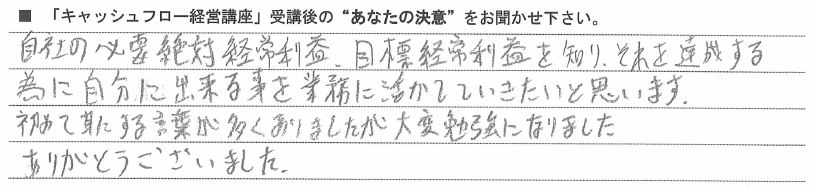 ■ 「キャッシュフロー経営講座」受講後の“あなたの決意”をお聞かせ下さい。
自社の必要絶対経常利益、目標経常利益を知り、それを達成する
為に自分に出来る事を業務に活かしていきたいと思います。
初めて耳にする言葉が多くありましたが大変勉強になりました
ありがとうございました。